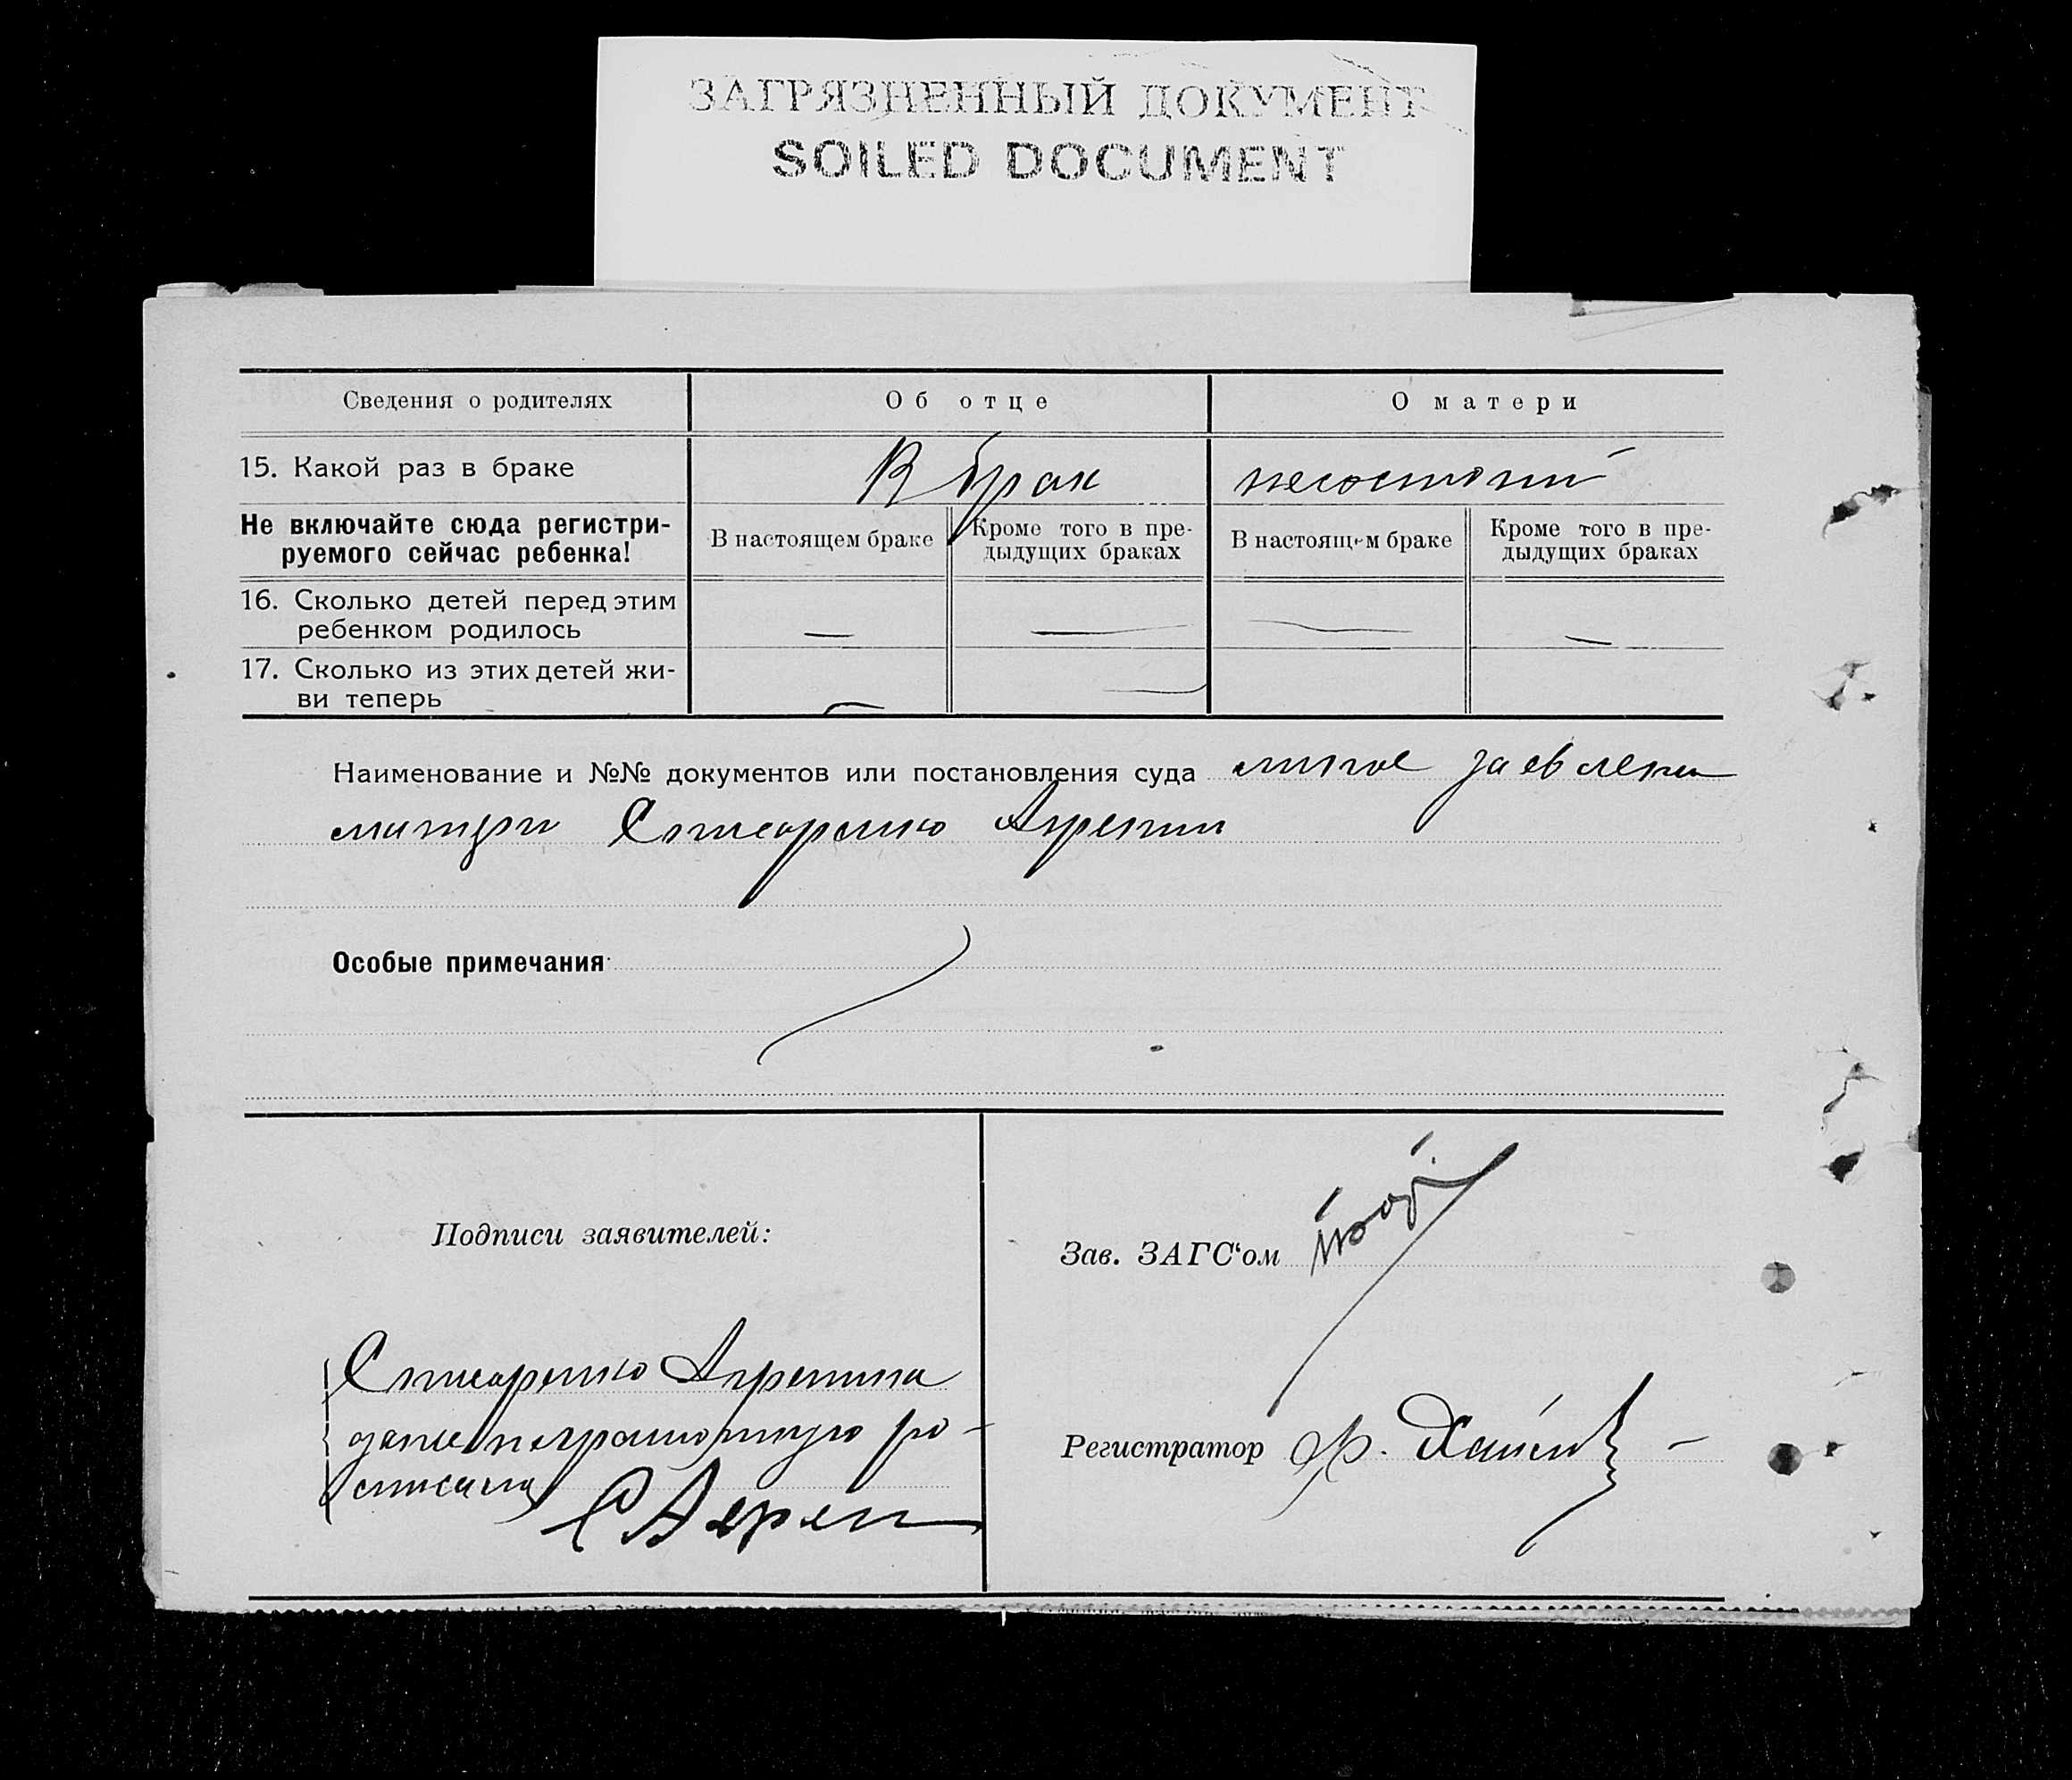 ЗАГРЯЗНЕННЫЙ ДОКУМЕНТ
SOILED DOCUMENT
Сведения о родителях
Об отце
О матери
15. Какой раз в браке
В брак
несостоит
Не включайте сюда регистри-
руемого сейчас ребенка!
В настоящем браке
Кроме того в пре-
дыдущих браках
В настоящем браке
Кроме того в пре-
дыдущих браках
16. Сколько детей перед этим
ребенком родилось
—
—
—
—
17. Сколько из этих детей жи-
ви теперь
—
—
Наименование и №№ документов или постановления суда личное заевлени
матери
Особые примечания
Подписи заявителей:
Зав. ЗАГС‘ом
Агрепина
Регистратор